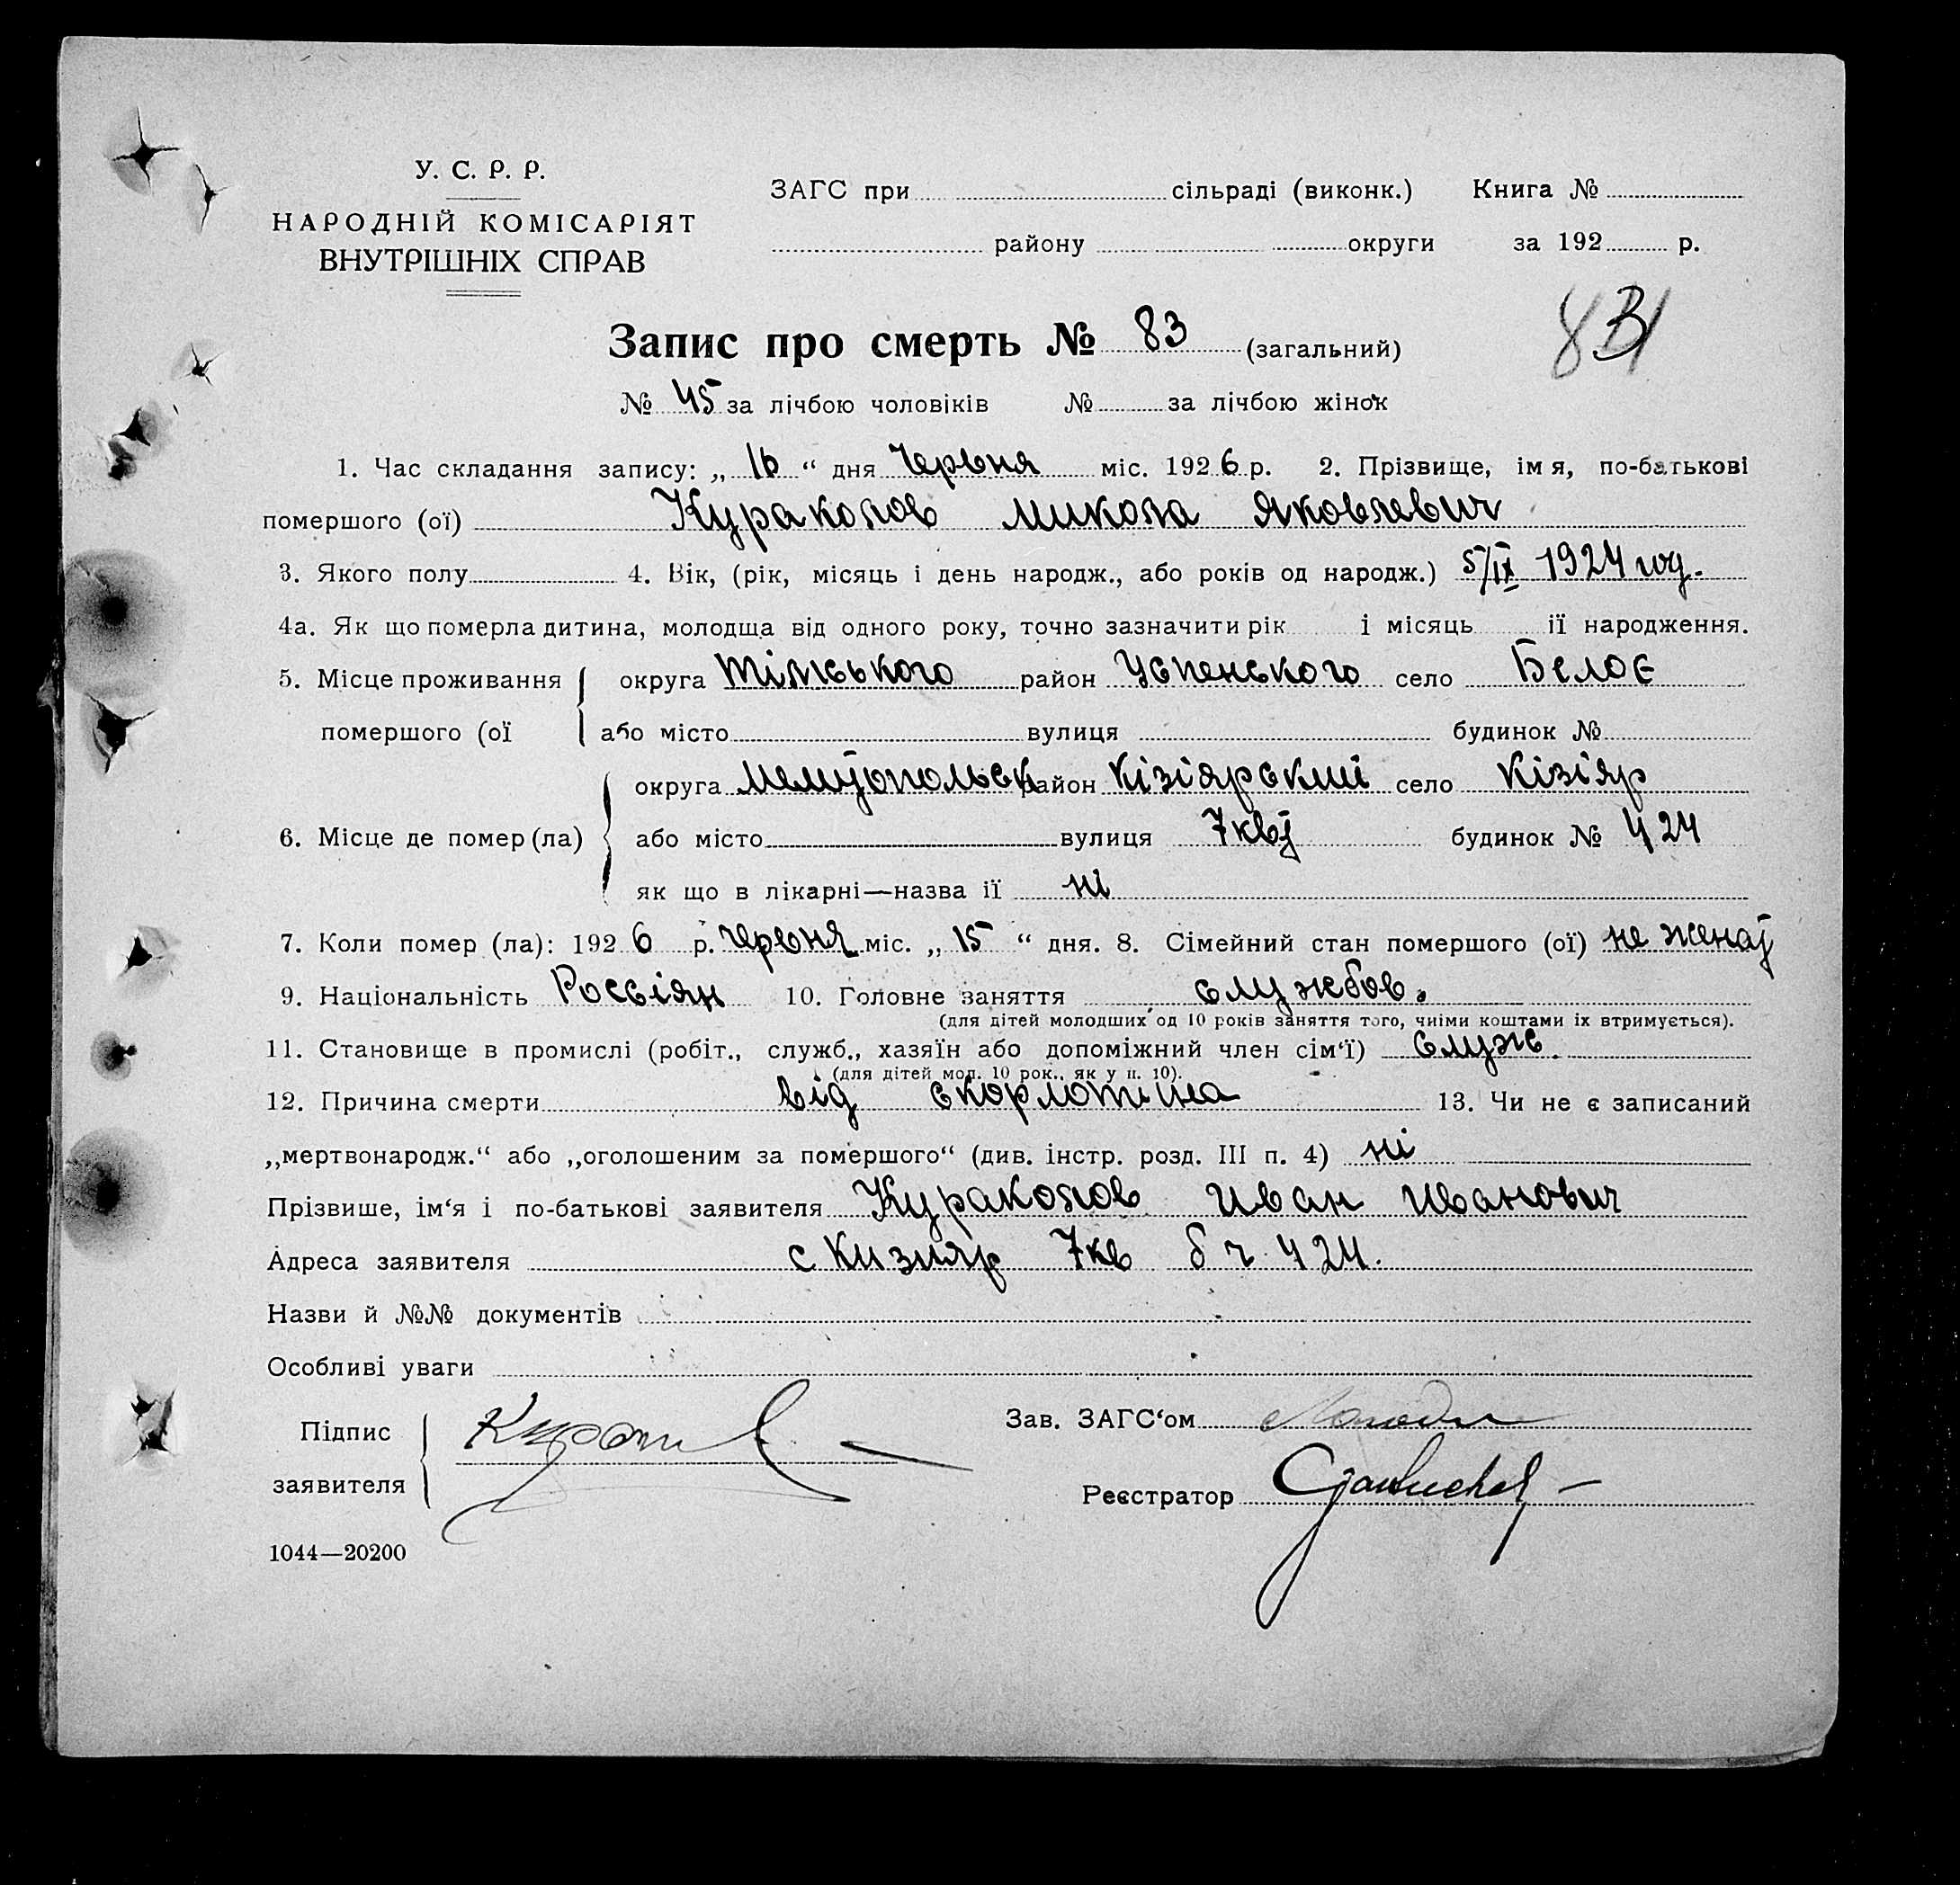 У. С. Р. Р.
НАРОДНІЙ КОМІСАРІЯТ
ВНУТРІШНІХ СПРАВ
ЗАГС при сільраді (виконк.) Книга №
району округи за 192 р.
Запис про смерть № 83 (загальний)
№ 45 за лічбою чоловіків № за лічбою жінок
1. Час складання запису: „ 16 “ дня Червня міс. 1926 р. 2. Прізвище, імя, по-батькові
помершого (ої) Кураколов Микола Яковлевич
3. Якого полу 4. Вік, (рік, місяць і день народж., або років од народж.) 5/IX 1924 год.
4а. Як що померла дитина, молодща від одного року, точно зазначити рік і місяць її народження.
5. Місце проживання округа Тімського район Успенського село Белоє
помершого (ої або місто вулиця будинок №
округа район Кізіярський село Кізіяр
6. Місце де помер (ла) або місто вулиця 7 кв будинок № 424
як що в лікарні—назва її ні
7. Коли помер (ла): 1926 р. червня міс. „ 15 “ дня. 8. Сімейний стан помершого (ої) не женат
9. Національність Россіян 10. Головне заняття службов.
(для дітей молодших од 10 років заняття того, чиїми коштами їх втримується).
11. Становище в промислі (робіт., служб., хазяїн або допоміжний член сім‘ї) служ.
(для дітей мол. 10 рок., як у п. 10).
12. Причина смерти від скорлотина 13. Чи не є записаний
„мертвонародж.“ або „оголошеним за помершого“ (див. інстр. розд. III п. 4) ні
Прізвише, ім‘я і по-батькові заявителя Кураколов Иван Иванович
Адреса заявителя с Кизияр 7 кв б ч 424.
Назви й №№ документів
Особливі уваги
Підпис
заявителя
Зав. ЗАГС‘ом
Реєстратор
1044—20200